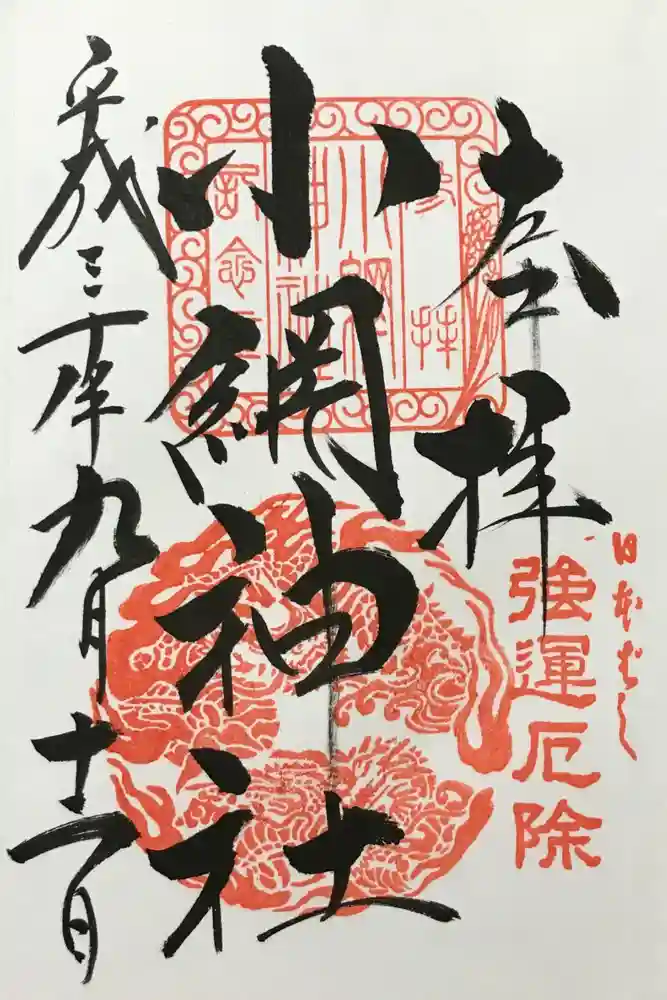 奉拝
日本ばし
強運厄除
参拝
小網
神社
小網神社
平成三十年九月十一日